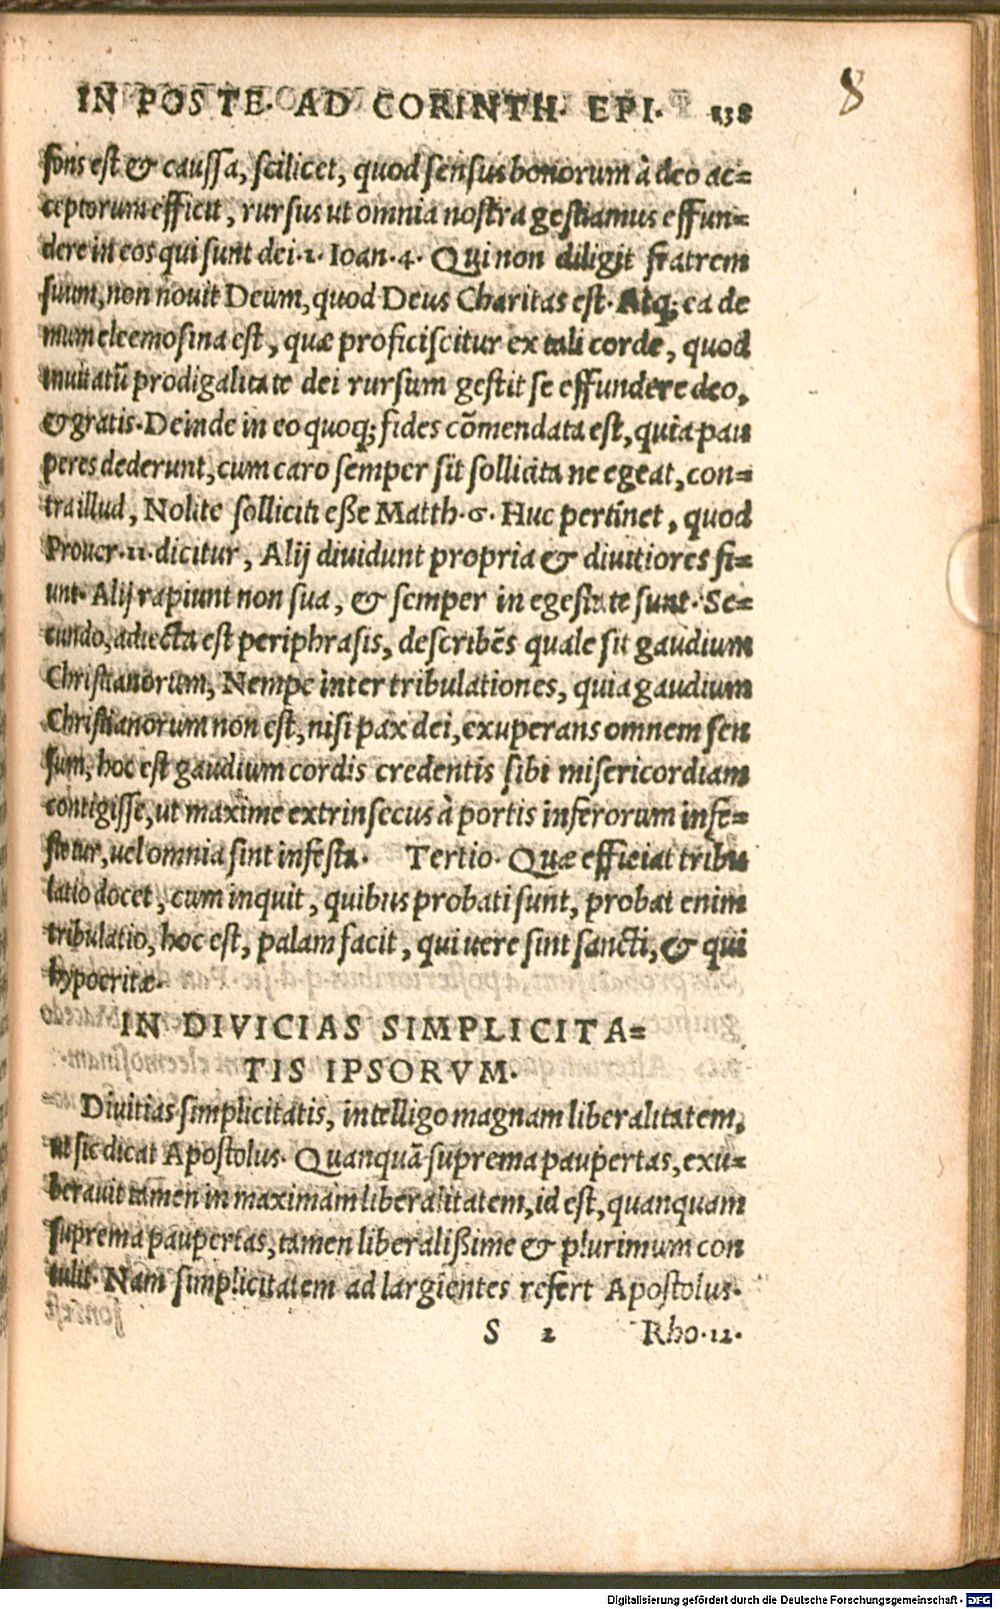 IN POSTE· AD CORINTH· EPI· 138
8
fons est & caussa, scilicet, quod sensus bonorum à deo ac=
ceptorum efficit, rursus ut omnia nostra gestiamus effun=
dere in eos qui sunt dei·1· Ioan·4· Qui non diligit fratrem
suum, non nouit Deum, quod Deus Charitas est· Atq; ea de
mum eleemosina est, quæ proficiscitur ex tali corde, quod
inuitatũ prodigalitate dei rursum gestit se effundere deo,
& gratis·Deinde in eo quoq; fides cõmendata est, quia pau
peres dederunt, cum caro semper sit sollicita ne egeat, con=
tra illud, Nolite solliciti eße Matth·6· Huc pertinet, quod
Prouer·11·dicitur, Alij diuidunt propria & diuitiores fi=
unt· Alij rapiunt non sua, & semper in egestate sunt· Se=
cundo, adiecta est periphrasis, describẽs quale sit gaudium
Christianorum, Nempe inter tribulationes, quia gaudium
Christianorum non est, nisi pax dei, exuperans omnem sen
sum, hoc est gaudium cordis credentis sibi misericordiam
contigisse, ut maxime extrinsecus à portis inferorum infe=
stetur, uel omnia sint infesta· Tertio· Quæ efficiat tribu
latio docet, cum inquit, quibus probati sunt, probat enim
tribulatio, hoc est, palam facit, qui uere sint sancti, & qui
hypocritæ·
IN DIVICIAS SIMPLICITA=
TIS IPSORVM·
Diuitias simplicitatis, intelligo magnam liberalitatem,
ut sic dicat Apostolus· Quanquã suprema paupertas, exu=
berauit tamen in maximam liberalitatem, id est, quanquam
suprema paupertas, tamen liberalißime & plurimum con
tulit· Nam simplicitatem ad largientes refert Apostolus·
S 2 Rho·12·
Digitalisierung gefördert durch die Deutsche Forschungsgemeinschaft - DFG